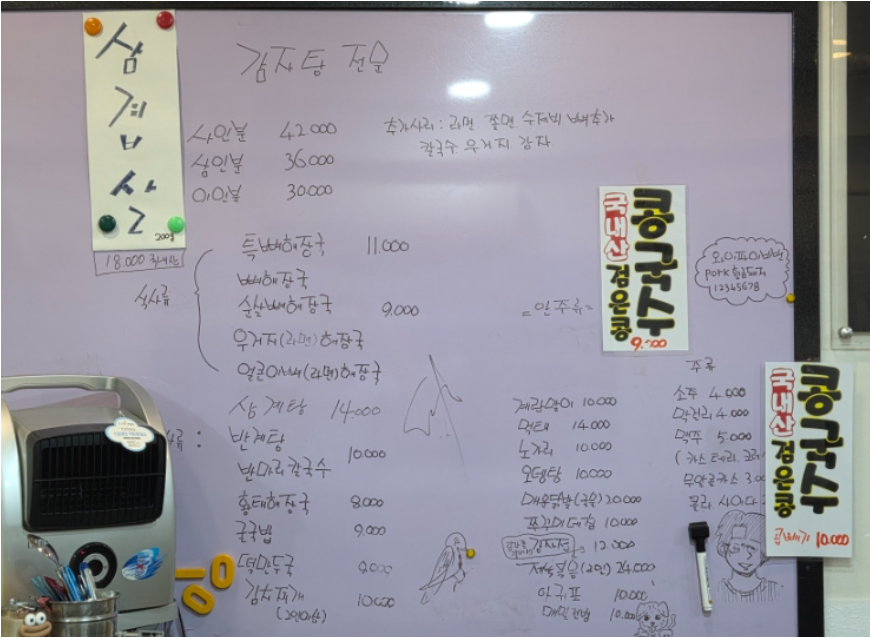 삼겹살
200g
18.000 국내산
감자탕 전문
사인분 42.000
삼인분 36.000
이인분 30.000
추가사리 : 라면. 쫄면. 수제비 뼈추가
칼국수. 우거지. 감자
식사류
특뼈해장국 11.000
뼈해장국
순살뼈해장국 9.000
우거지(라면)해장국
얼큰이뼈(라면)해장국
삼계탕 14.000
반계탕
반마리칼국수 10.000
황태해장국 8.000
굴국밥 9.000
떡만두국 9.000
김치찌개 10.000
(2인이상)
콩국수
국내산 검은콩
9.000
와이파이비번
Pork
12345678
= 안주류 =
계란말이 10.000
먹태 14.000
노가리 10.000
오뎅탕 10.000
매운닭발(국물) 20.000
쭈꾸미데침 10.000
감자전 12.000
제육볶음(2인) 24.000
아귀포 10.000
메밀전병 10.000
주류
소주 4.000
막걸리 4.000
맥주 5.000
(카스 테라
무알콜카스 3.0
콜라 사이다 2
콩국수
국내산 검은콩
곱빼기 10.000